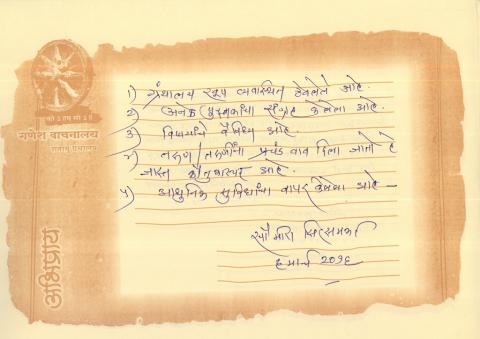 गणेश वाचनालय
अभिप्राय
१) ग्रंथालय खूप व्यवस्थित ठेवलेले आहे.
२) अनेक पुस्तकांचा संग्रह केलेला आहे.
३) विषयांचे वैविध्य आहे.
४) तरुण/तरुणींना प्रचंड वाव दिला जातो हे
जास्त कौतुकास्पद आहे.
५) आधुनिक सुविधांचा वापर केलेला आहे –
सौ मीरा
८ मार्च २०१६